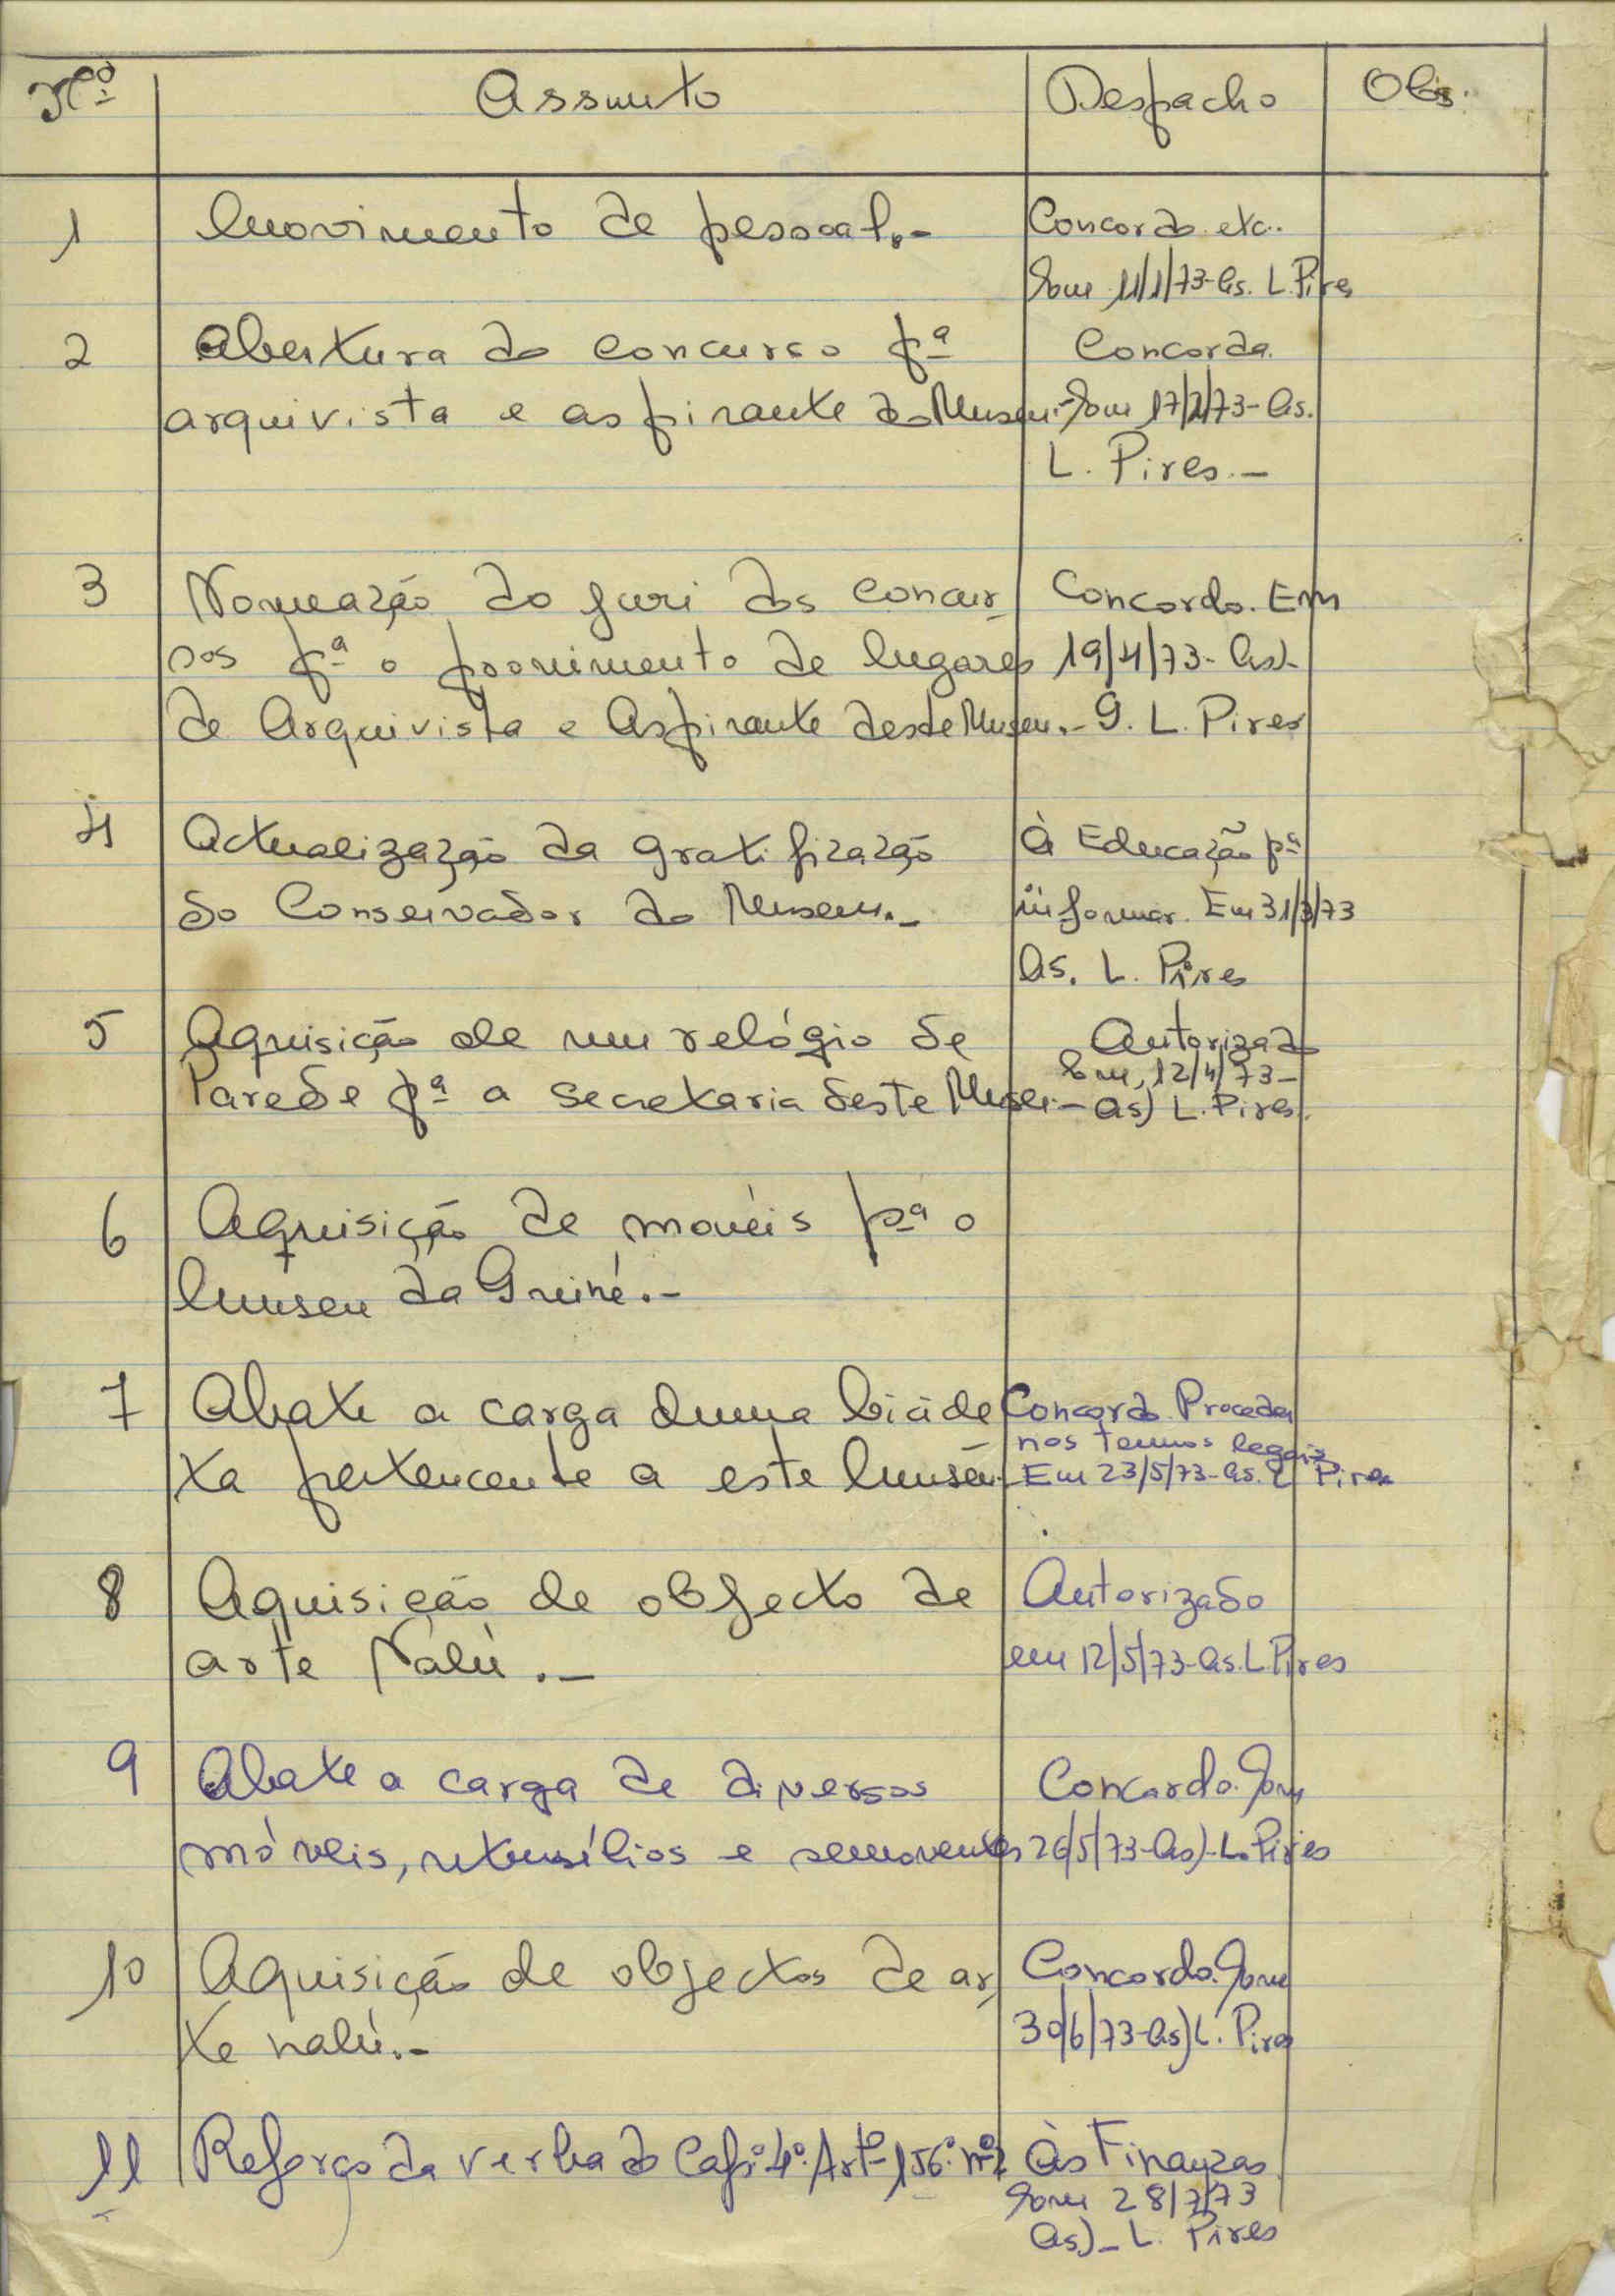 Nº Assunto Despacho Obs.
1 Movimento de pessoal.- Concordo etc.
Em 11/1/73-as. L. Pires
2 Abertura do concurso pª Concordo.
arquivista e aspirante do Museu.- Em 17/2/73-as.
L. Pires.-
3 Nomeação do juri dos concur- Concordo. Em
sos pª o provimento de lugares 19/4/73-as)-
de Arquivista e Aspirante deste Museu.- G. L. Pires
4 Actualização da gratificação À Educação pª
do Conservador do Museu.- informar. Em 31/3/73
as. L. Pires
5 Aquisição de um relógio de Autorizado
Parede pª a secretaria deste Museu.- Em, 12/4/73-
as) L. Pires.
6 Aquisição de moveis pª o
Museu da Guiné.-
7 Abate a carga duma bicicle Concordo. Proceder
ta pertencente a este Museu. nos termos legais
Em 23/5/73-as. L Pires
8 Aquisição de objecto de Autorizado
arte Nalú.- em 12/5/73-as. L Pires
9 Abate a carga de diversos Concordo. Em
móveis, utensílios e semoventes 26/5/73-as)-L. Pires
10 Aquisição de objectos de ar- Concordo. Em
te nalú.- 30/6/73-as) L. Pires
11 Reforço da verba do Capº. 4º. Artº 156º. nº2 Às Finanças
Em 28/7/73
as)- L. Pires